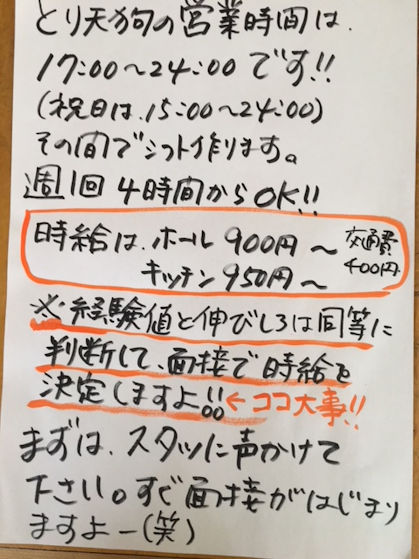 とり天狗の営業時間は.
17:00〜24:00です!!
(祝日は.15:00〜24:00)
その間でシフト作ります。
週1回4時間からOK!!
時給は.ホール900円〜 交通費
キッチン950円〜 400円.
※経験値と伸びしろは同等に
判断して、面接で時給を
決定しますよ!! ←ココ大事!!
まずは、スタッに声かけて
下さい。すぐ面接がはじまり
ますよー(笑)